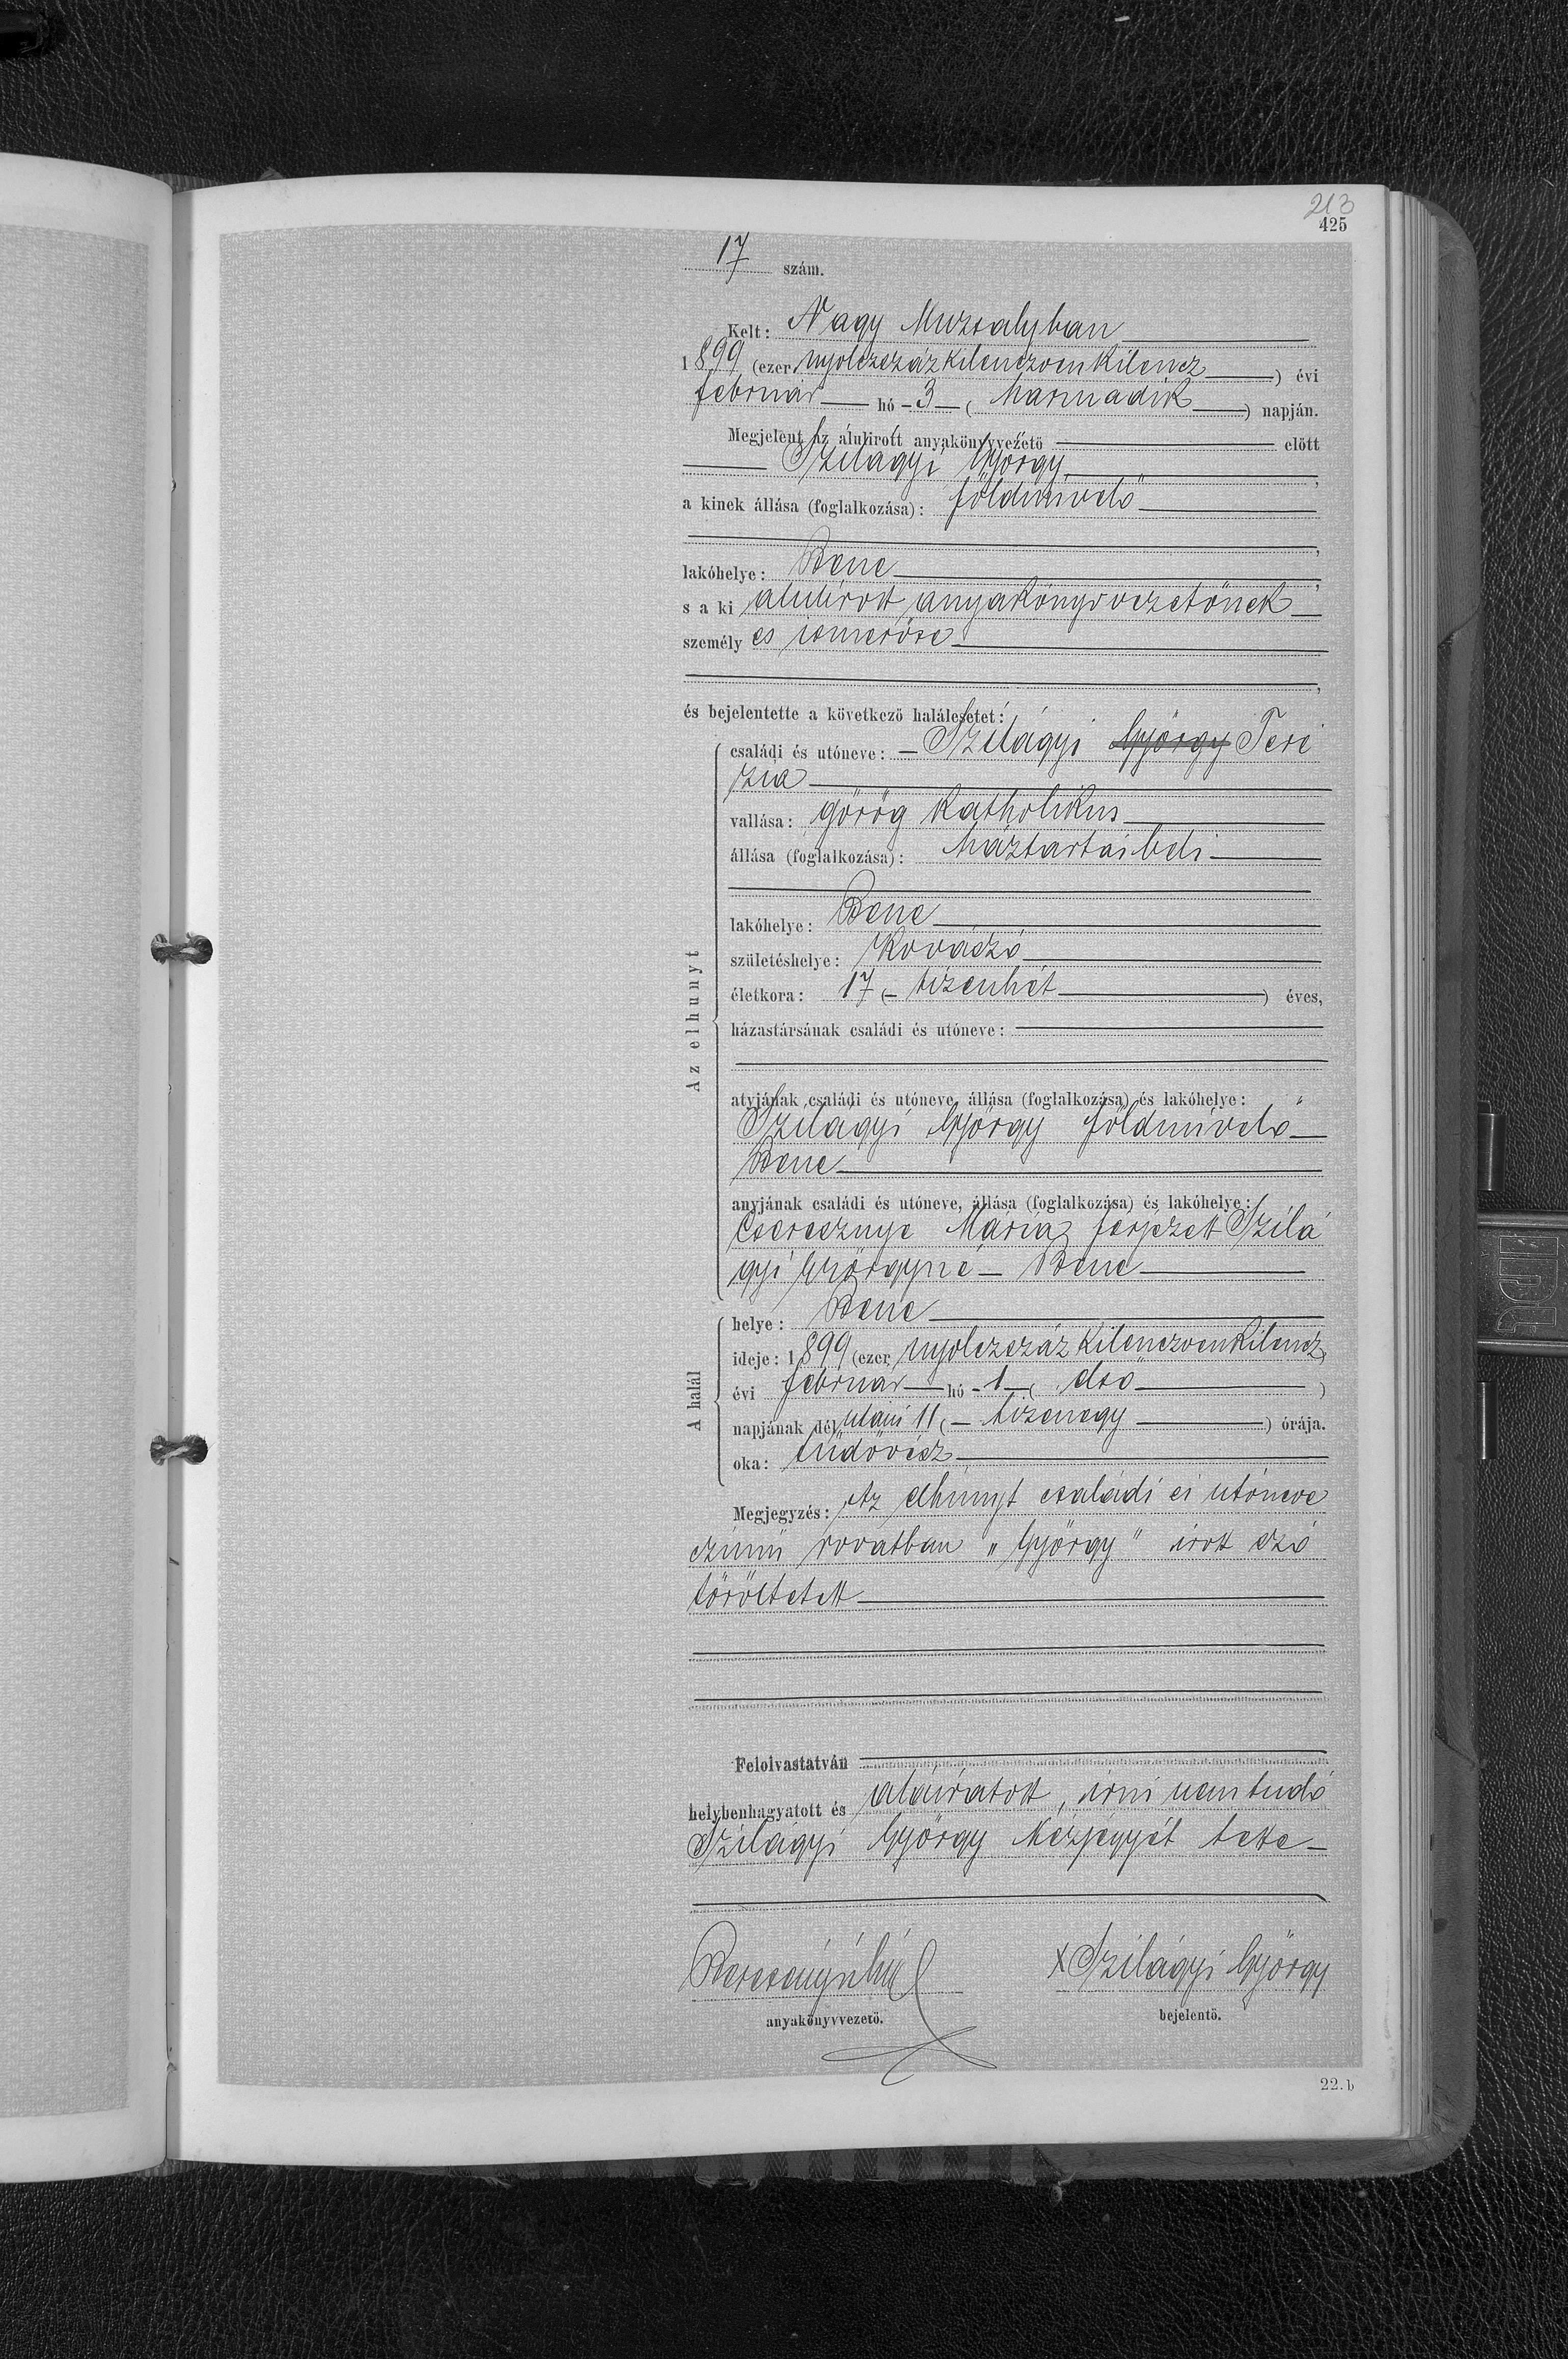 213
425
17 szám.
Kelt: Nagy Muzsalyban
1899 (ezer nyolczszáz kilenczven kilencz) évi
február hó 3 (harmadik) napján.
Megjelent az alulirott anyakönyvvezető előtt
Szilágyi György,
a kinek állása (foglalkozása): földmivelő
,
lakóhelye: Bene,
s a ki alulirott anyakönyvvezetőnek
személyes ismerőse
,
és bejelentette a következő halálesetet:
Az elhunyt
családi és utóneve: – Szilágyi György Teré
zia
vallása: görög katholikus
állása (foglalkozása): háztartásbeli
lakóhelye: Bene
születéshelye: Kovászó
életkora: 17 (– tizenhét) éves,
házastársának családi és utóneve:
atyjának családi és utóneve, állása (foglalkozása) és lakóhelye:
Szilágyi György földmivelő –
Bene
anyjának családi és utóneve, állása (foglalkozása) és lakóhelye:
Cseresznye Mária férjezett Szilá
gyi Györgyné – Bene
A halál
helye: Bene
ideje: 1899 (ezer nyolczszáz kilenczven kilencz)
évi február hó – 1 – (első)
napjának dél utáni 11 (– tizenegy) órája.
oka: tüdővész
Megjegyzés: Az elhunyt családi és utóneve
czimü rovatban „György" irott szó
töröltetett
Felolvastatván
helybenhagyatott és aláiratott, irni nem tudó
Szilágyi György kézjegyét tette –
X Szilágyi György
anyakönyvvezető.
bejelentő.
22. b